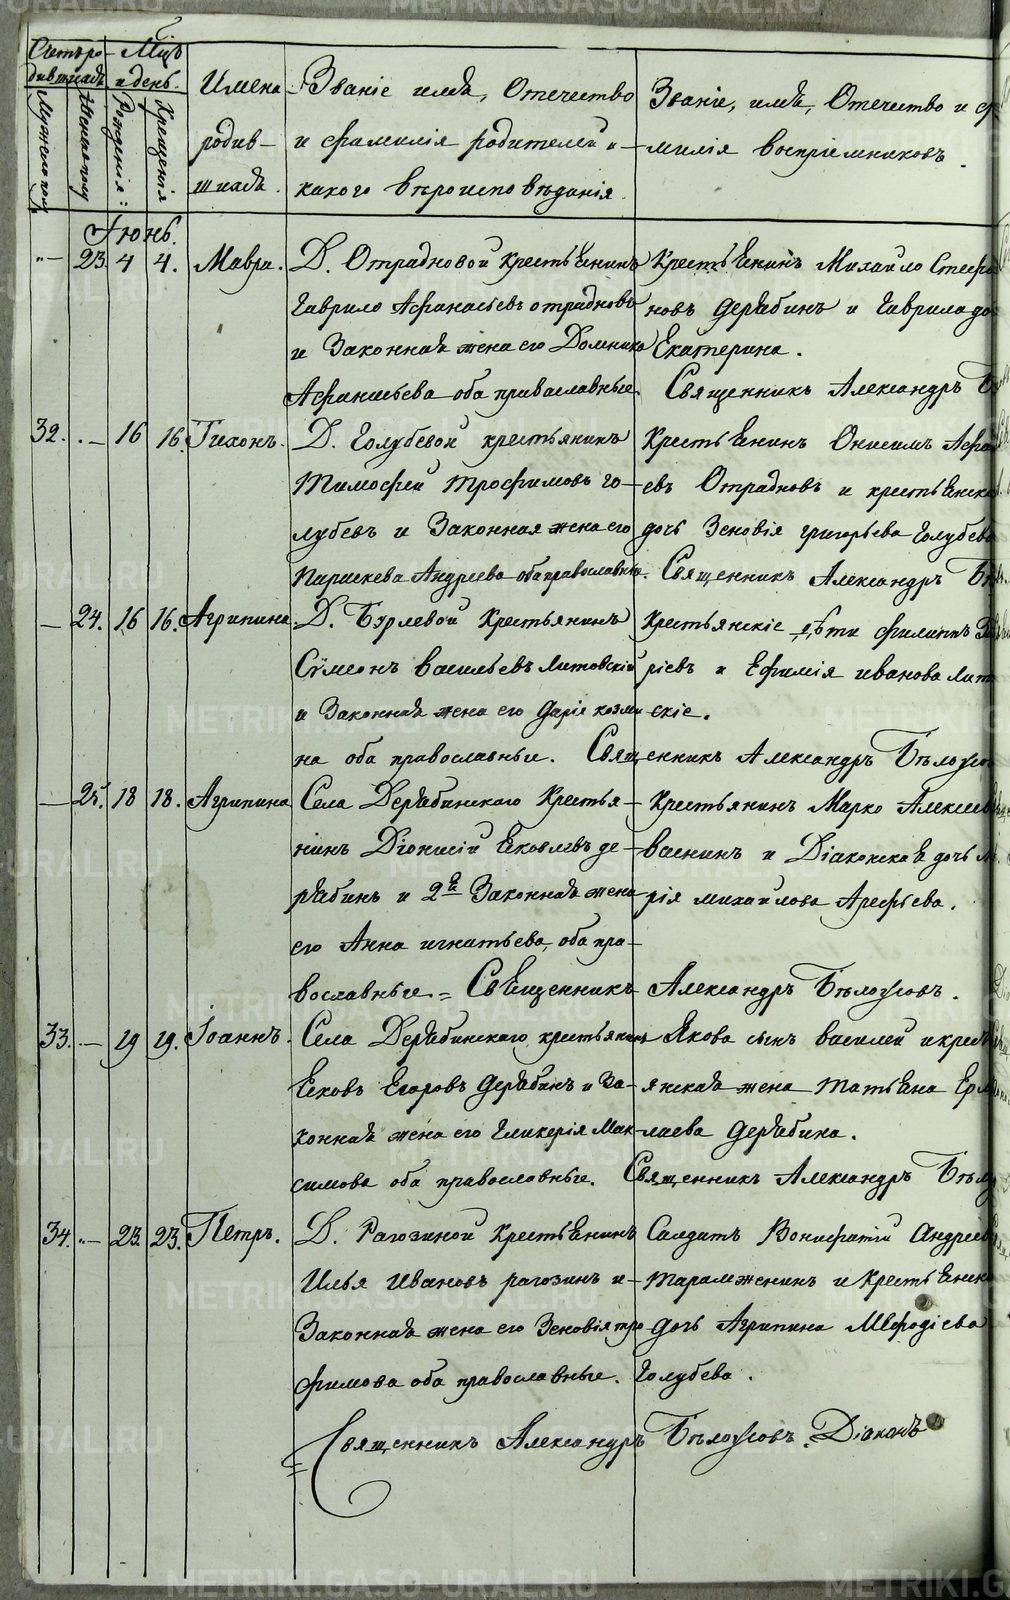 Счетъ ро- Мцъ
дившихся и день.
Мужеска полу
Женска полу
Рожденія:
Крещенія
Имена
родив-
шихся.
Званіе имя, Отечество
и фамилія родителей и
какого вѣроисповѣданія.
Званіе, имя, Отечество и фа
милія воспріемниковъ.
Іюнь.
"- 23. 4 4. Мавра.
Д. Отрадновой крестьянинъ
Гаврило Афанасьевъ отрадновъ
и Законная жена его Домника
Афанасьева оба православные.
Крестьянинъ Михайло Стефа
новъ дерябинъ и Гаврила до
Екатерина.
Священникъ Александръ
32. .- 16 16. Тихонъ.
Д. Голубевой крестьянинъ
Тимофей трофимовъ го-
лубевъ и Законная жена его
Параскева Андреева оба православные.
Крестьянинъ Онисимъ Афа
евъ Отрадновъ и крестьянска
дочь Зеновія григорьева голубева
Священникъ Александръ
- 24. 16 16. Агрипина.
Д. Бэрлевой Крестьянинъ
Сѵмеонъ васильевъ Литовскій
и Законная жена его дарія козми
на оба православные.
Крестьянскіе дѣти филиппъ
ріевъ и Ефимія иванова Лит
скіе.
Священникъ Александръ Бѣлоусов
- 25. 18 18. Агрипина
Села Дерябинскаго Крестья-
нинъ Діонисій Яковлевъ де-
рябинъ и 2я Законная жена
его Анна игнатьева, оба пра-
вославные = Священникъ Александръ Бѣлоусовъ.
Крестьянинъ Марко Алексеев
васнинъ и Діаконская дочь М
рія михаилова Арефьева.
33. .- 19 19. Іоаннъ.
Села Дерябинскаго, крестьянинъ
Яковъ Егоровъ дерябинъ и За-
конная жена его Гликерія Мак-
симова оба православные.
Якова сынъ василей и крест
янская жена татьяна Ерм
лаева дерябина.
Священникъ Александръ Бѣлоу
34. "- 23. 23. Петръ.
Д. Рагозиной Крестьянинъ
Илья Ивановъ рагозинъ и
Законная жена его Зеновія тро
фимова оба православные.
Салдатъ Вонифатій Андреев
тарамженинъ и Крестьянска
дочь Агрипина Мѳфодіева
голубева.
Священникъ Александръ Бѣлоусовъ. Діаконъ
METRIKI.GASO-URAL.RU